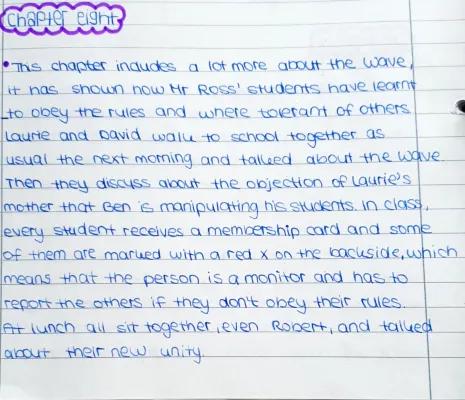 Chapter eight
• This chapter includes a lot more about the wave,
it has shown how Mr Ross' students have learnt
to obey the rules and where tolerant of others
Laurie and David walk to school together as
usual the next morning and talked about the wave.
Then they discuss about the objection of Laurie's
mother that Ben is manipulating his students. In class,
every student receives a membership card and some
of them are marked with a red x on the backside, which
means that the person is a monitor and has to
report the others if they don't obey their rules.
At lunch all sit together, even Robert, and talked
about their new unity.